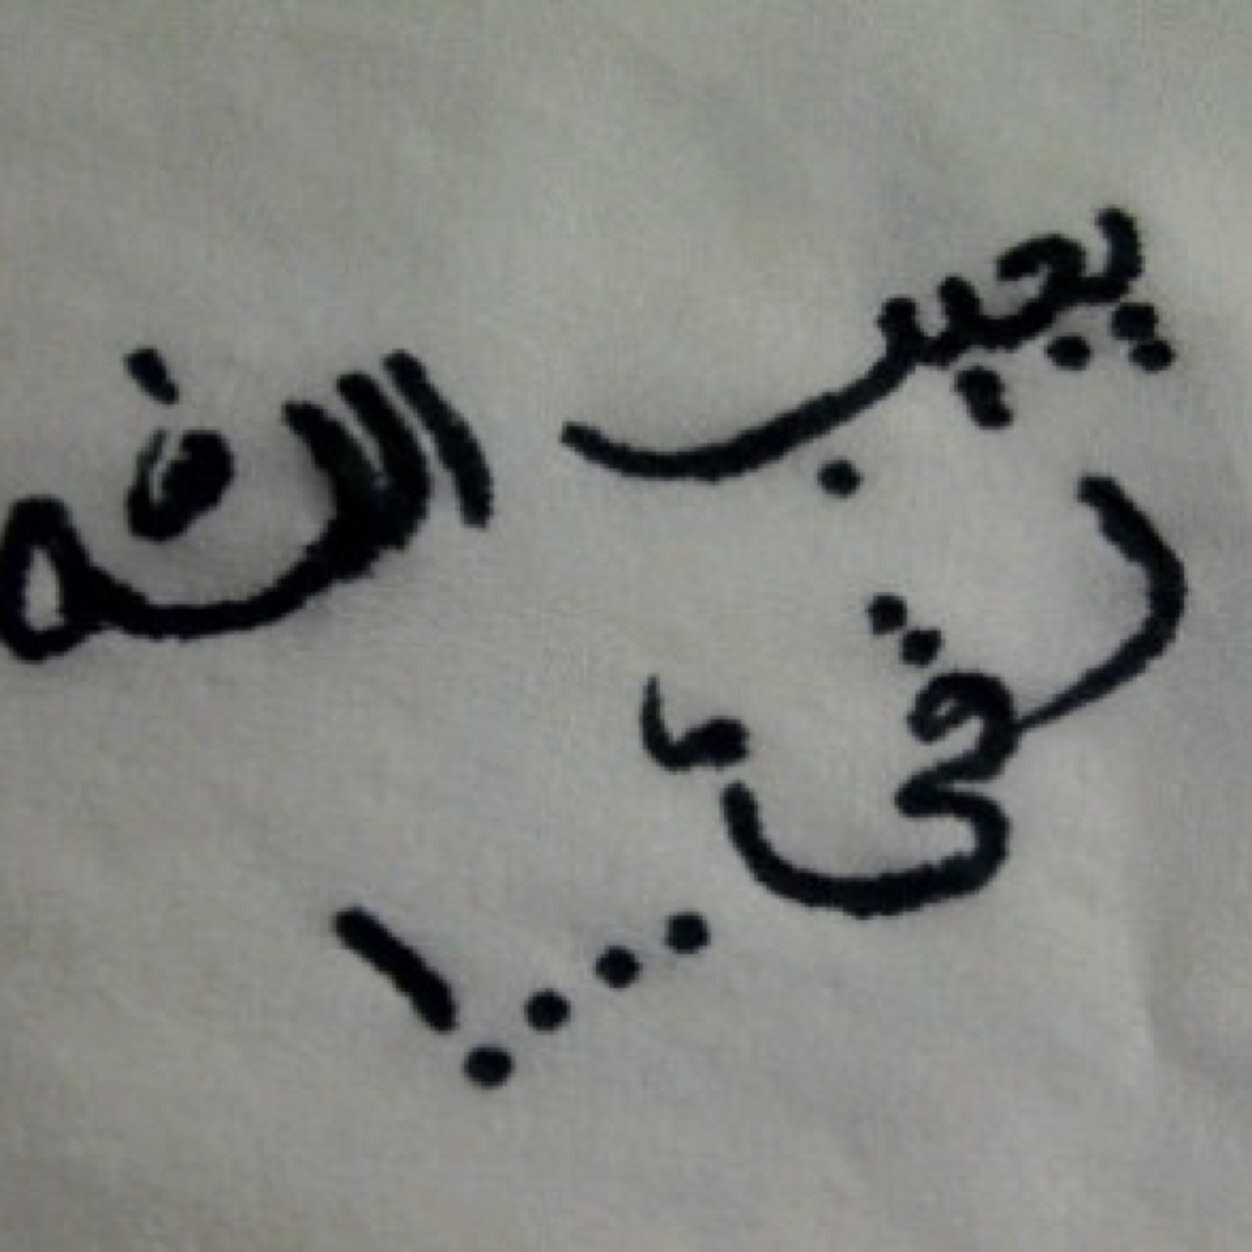 يجيب الله
لقىء ....!